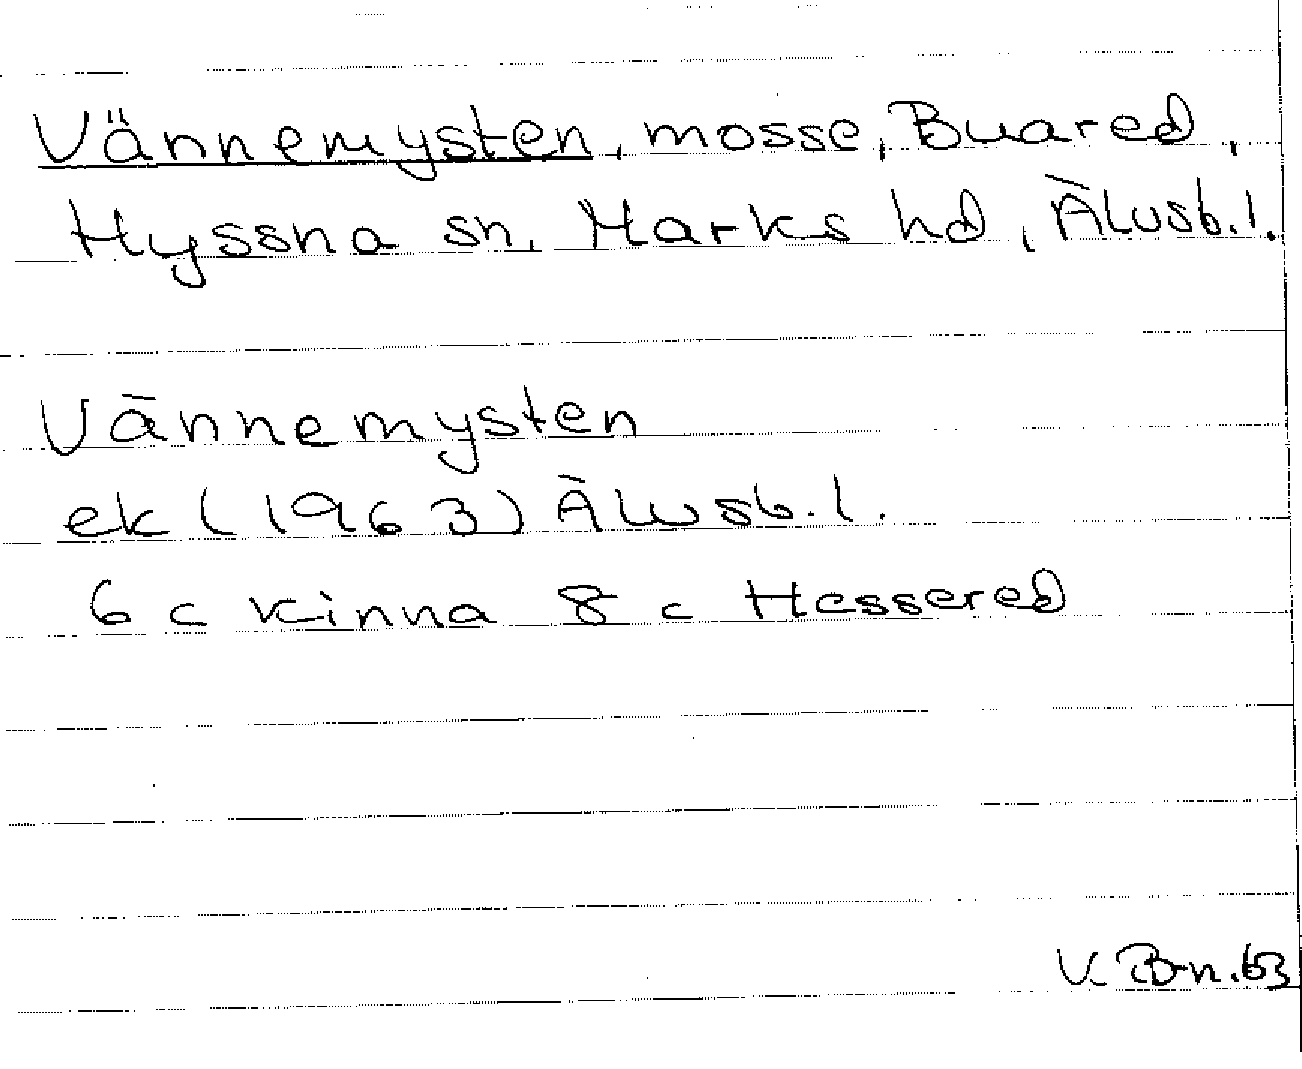 Vännemysten, mosse, Buared,
Hyssna sn, Marks hd, Älvsb.l.
Vännemysten
ek (1963) Älvsb.l.
6 c Kinna 8 c Hessered
V. Bn. 63